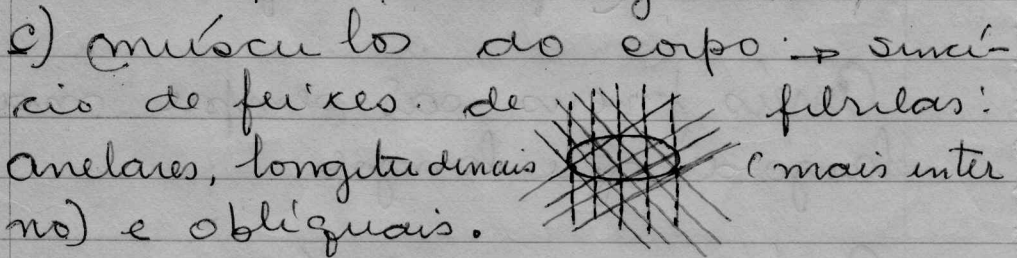 c) músculos do corpo → sincí-
cio de feixes de fibrilas:
anelares, longitudinais (mais inter
no) e obliquais.